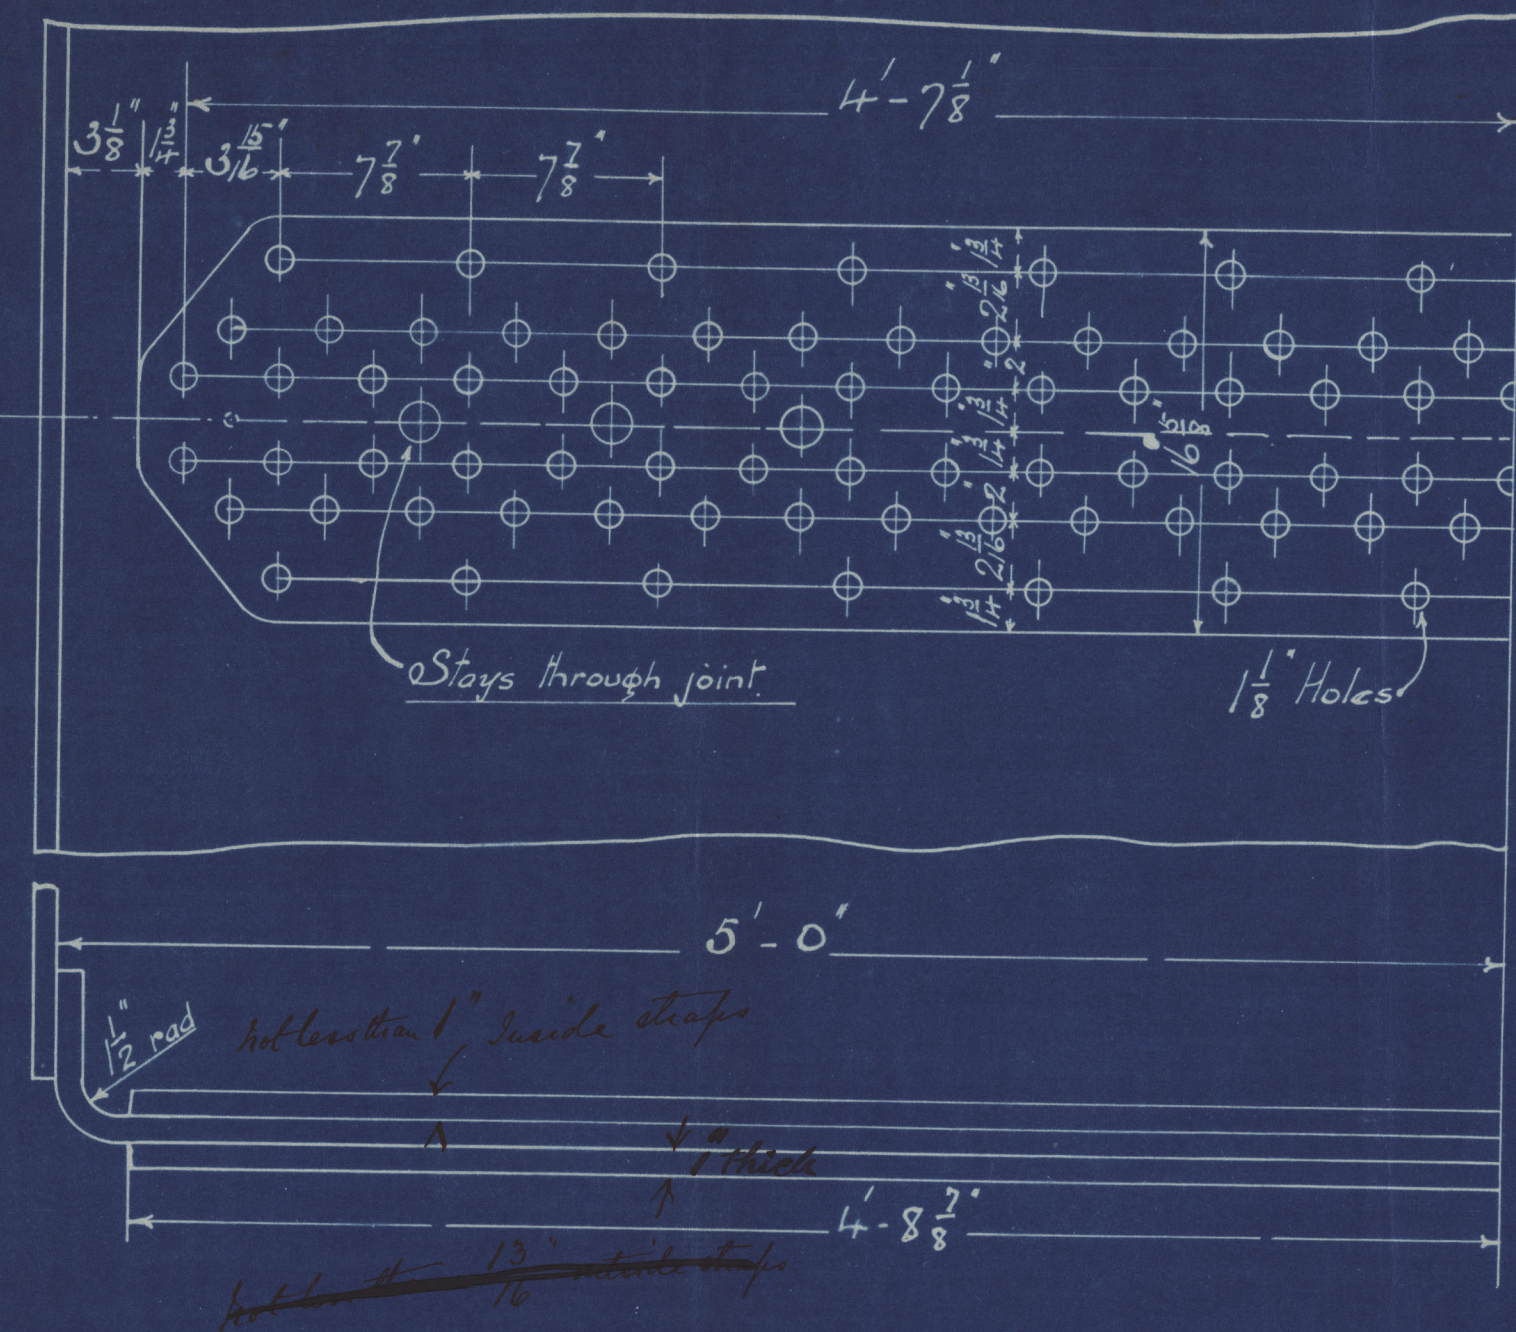 4'-7 1/8"
3 1/8" 1 3/4" 3 15/16" 7 7/8" 7 7/8"
1 3/4"
2 13/16"
2"
1 3/4"
16 5/8"
1 3/4"
2"
2 13/16"
1 3/4"
Stays through joint.
1 1/8" Holes
5'-0"
1 1/2" rad
not less than 1" Inside straps
1" thick
4'-8 7/8"
not less than 13/16" outside straps